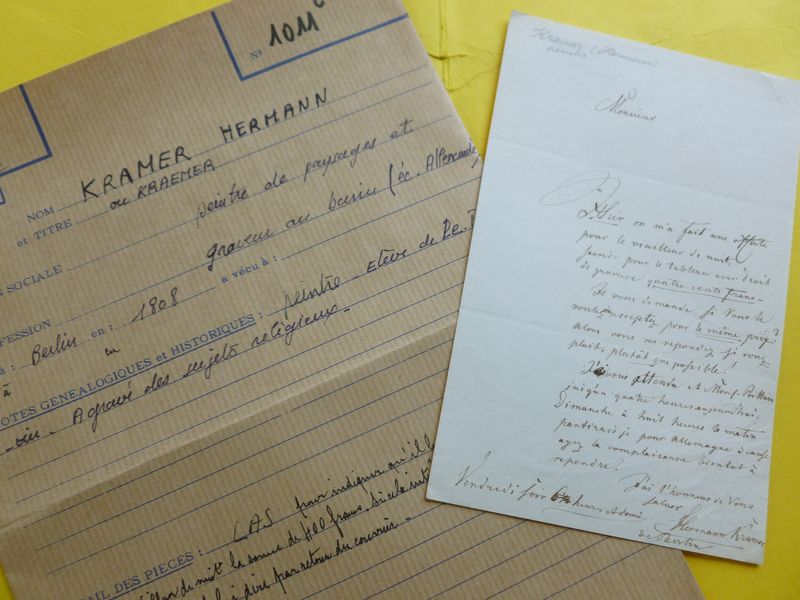 Nº 1011 c
NOM KRAMER HERMANN
et TITRE ou KRAEMER
SOCIALE peintre de paysages et
FESSION graveur au burin (éc. Allemande)
à : Berlin en : 1808 a vécu à :
à en
NOTES GENEALOGIQUES et HISTORIQUES : peintre - Elève de De.
A gravé des sujets religieux
AIL DES PIECES : LAS pour indiquer qu'il
de nuit la somme de 400 francs si cela
dire par retour du courrier -
Kramer Hermann
peintre
Monsieur
on m'a fait une offerte
pour le veuilleur de nuit,
savoir pour le tableau avec droit
de gravure quatre cents franc
Je vous demande si Vous le
voulez acceptez pour le même prix?
Alors vous me repondrez s'il vous
plait, plutôt que possible!
J'ai vous attenu et Mons.
jusqu'à quatre heures aujourd'hui.
Dimanche à huit heures le matin
partirais je pour Allemagne à cause
ayez la complaisance bientôt à
repondre.
J'ai l'honneur de Vous
saluer
Vendredi soir 6 heures et demi
Hermann Kramer
de Berlin